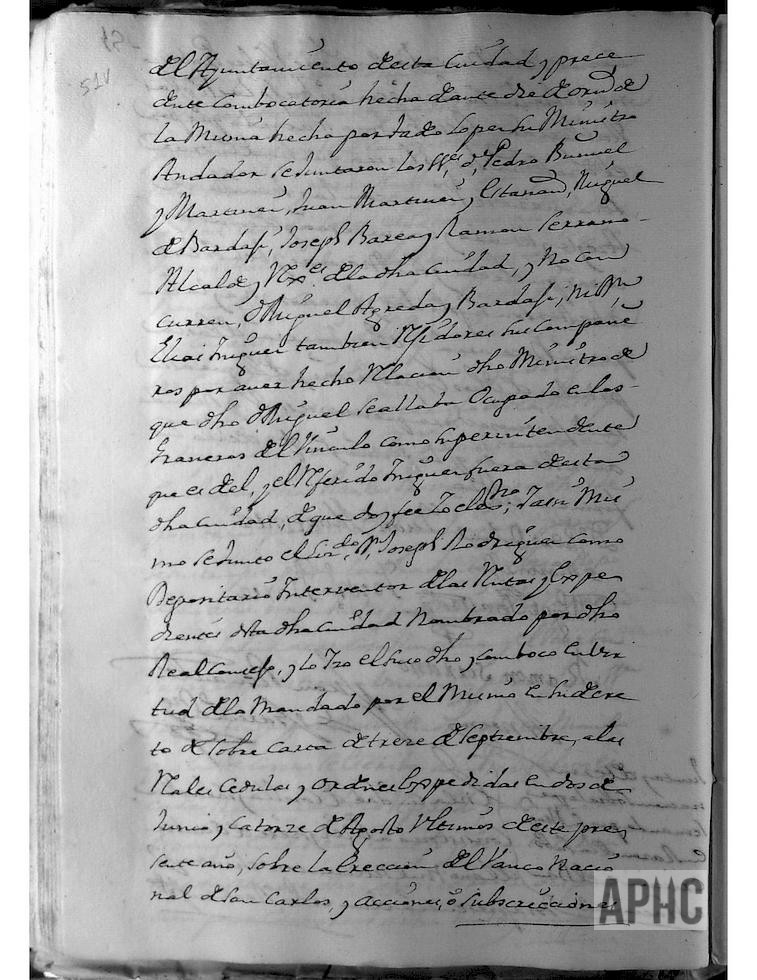 51V
del Ayuntamiento de esta Ciudad y prece
dente Combocatoria hecha de ante dia de orn de
la Misma hecha por Tadeo Loper su Ministro
Andador se Juntaron los SS.es d.n Pedro Buñuel
y Martinez, Juan Martinez y Estanan, Miguel
de Bardaji, Joseph Barea y Ramon Serrano
Alcalde y Rex.es de la dha Ciudad, y no con
curren, d Miguel Agreda y Bardaji, ni
Elias Iniguez tambien Rexidores sus Compañe
ros por aver hecho Relacion dho Ministro de
que dho d Miguel se allaba Ocupado en los
Graneros del Vinculo como superintendente
que es del, y el Referido Iniguez fuera de esta
dha Ciudad, de que doy fee Yo el ss.no; Y assi Mis
mo se Junto el Lic.do d.n Joseph Rodriguez como
Depositario Interventor de las Rentas y Expe
dientes desta dha Ciudad Nombrado por dho
Real Consejo, y Lo Izo el suso dho y comboco en vir
tud de lo Mandado por el Mismo en su decre
to de sobre Carta de trece de Septiembre, a las
Reales Cedulas y ordenes Expedidas en dos de
Junio y Catorze de Agosto Ultimos de este pre
sente año, sobre la Ereccion del Vanco Nacio
nal de San Carlos, y acciones, o subscricciones
APHC